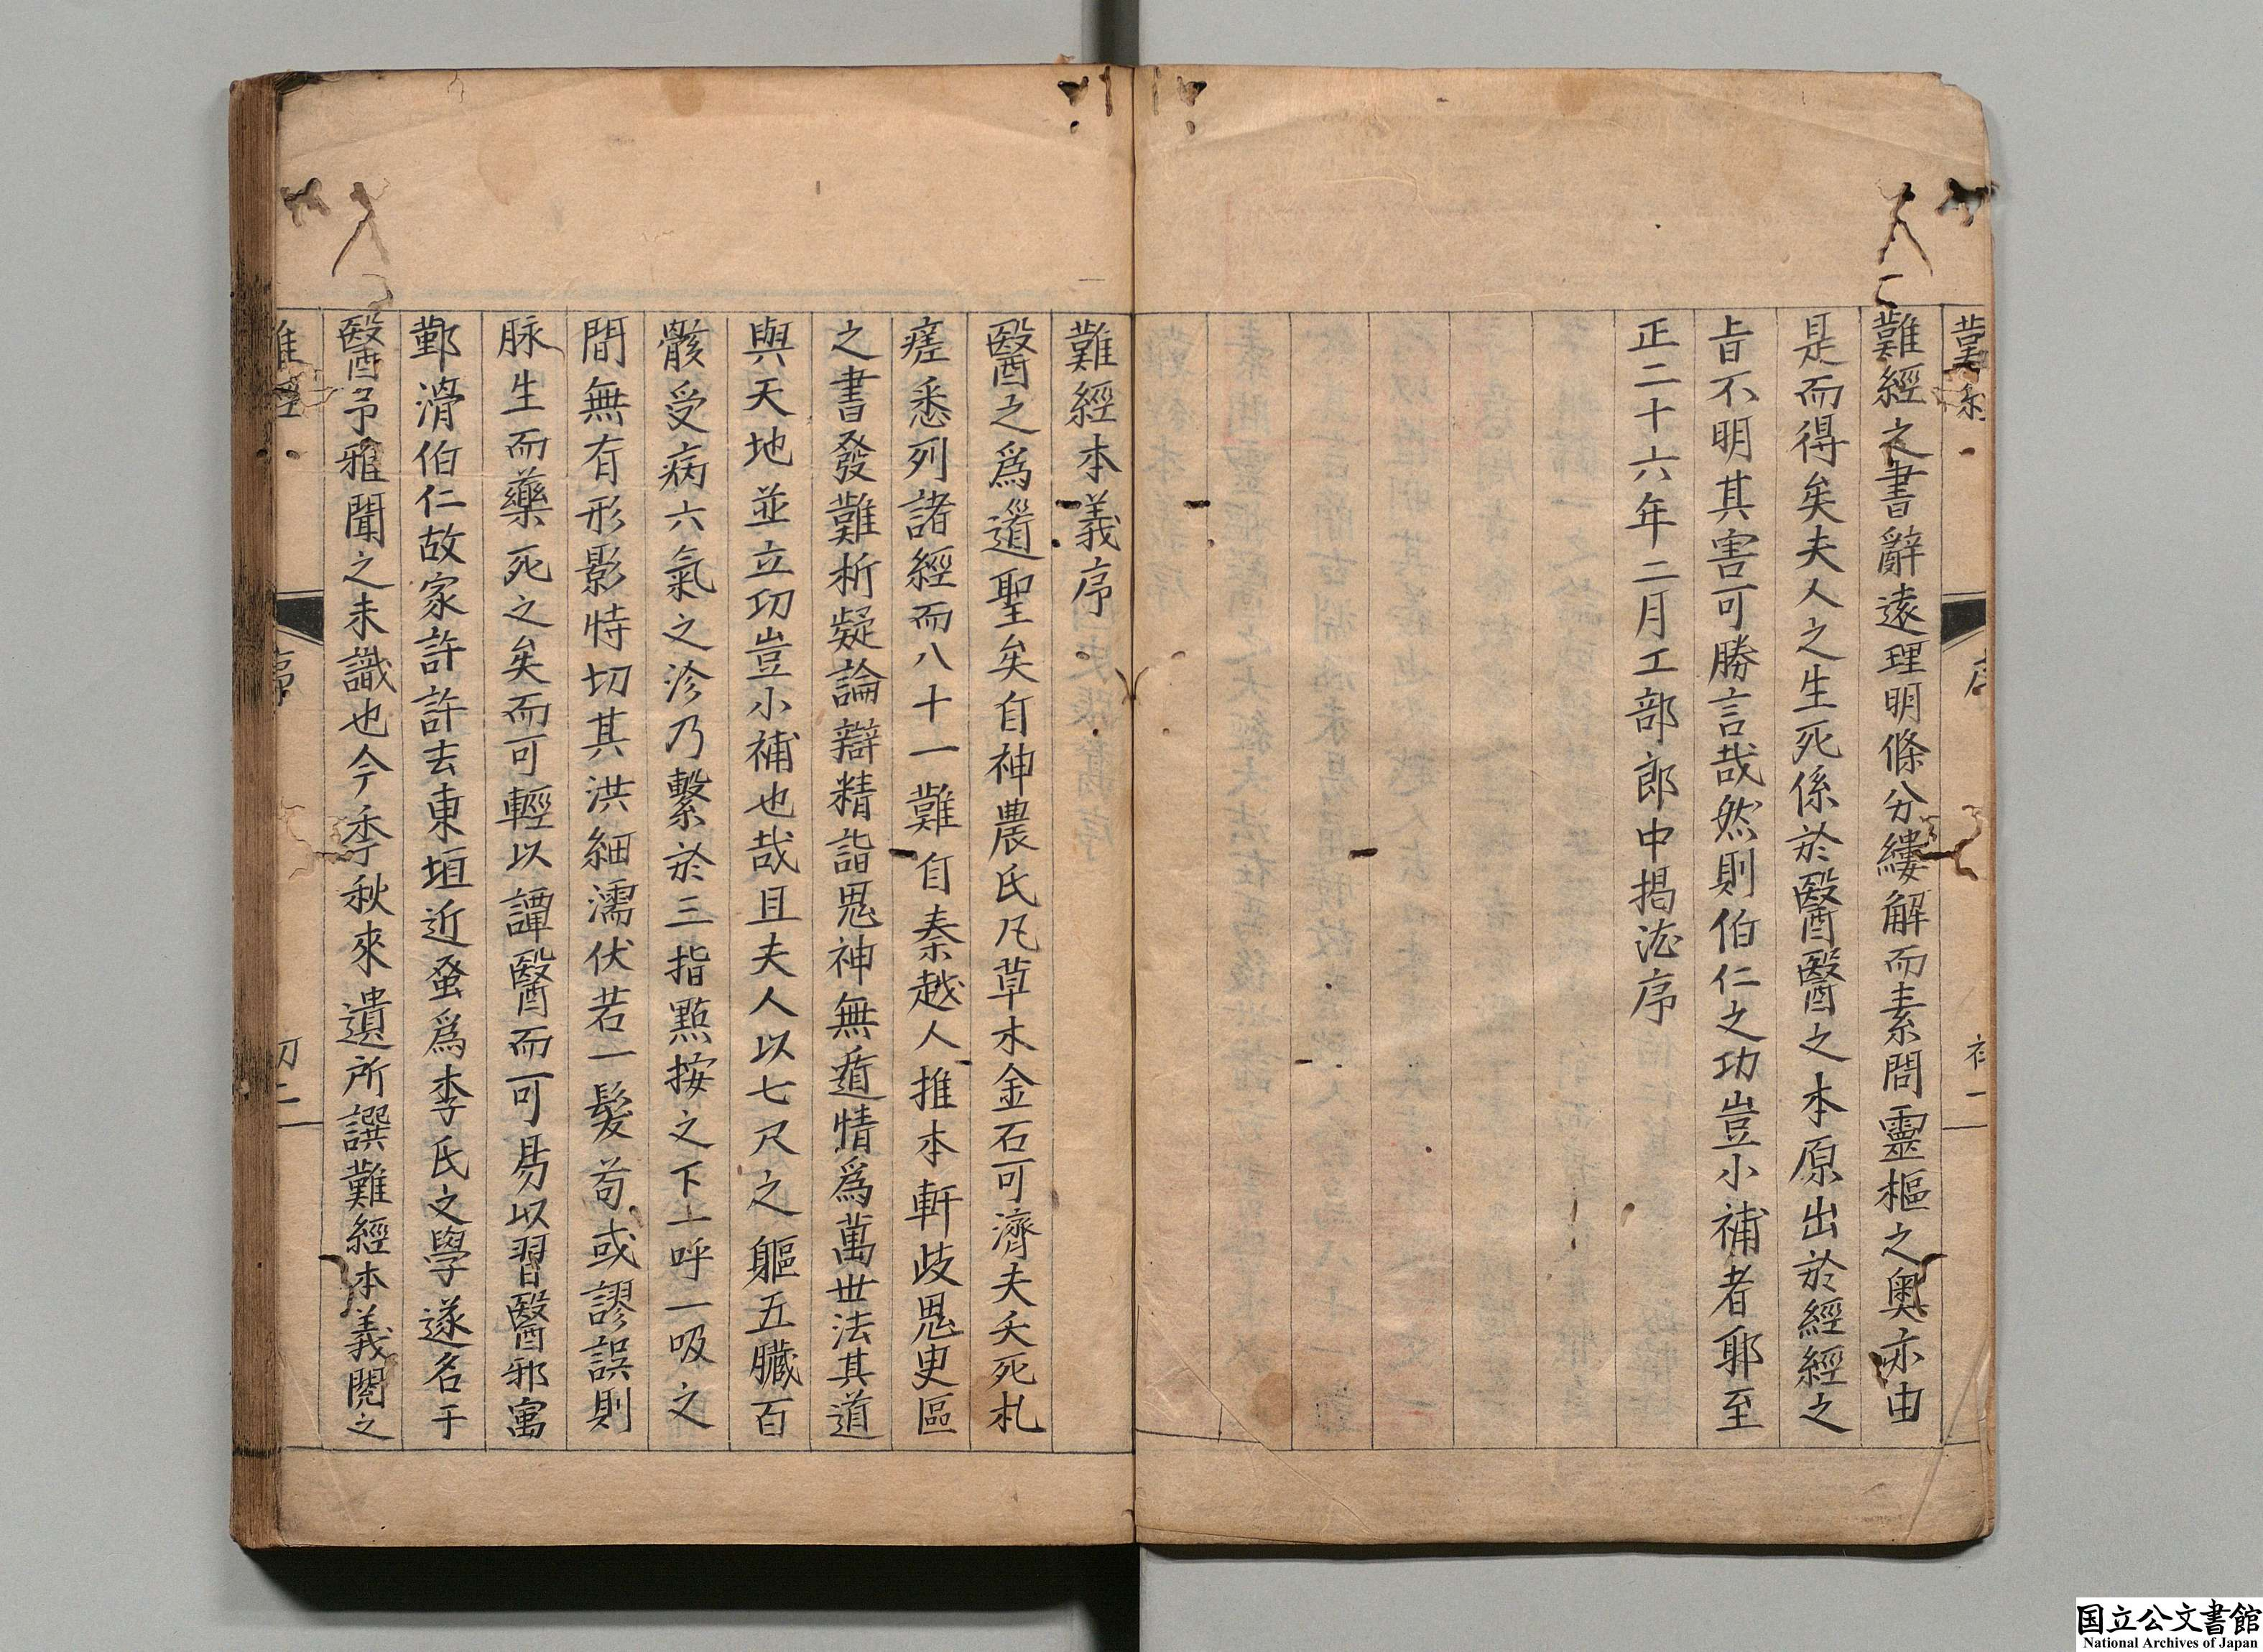 難經之書辭遠理明條分縷解而素問靈樞之奧亦由
是而得矣夫人之生死係於醫醫之本原出於經經之
旨不明其害可勝言哉然則伯仁之功豈小補者耶至
正二十六年二月工部郎中揭汯序
難經本義序
醫之爲道聖矣自神農氏凡草木金石可濟夫夭死札
瘥悉列諸經而八十一難自秦越人推本軒歧鬼臾區
之書發難析疑論辯精詣鬼神無遁情爲萬世法其道
與天地並立功豈小補也哉且夫人以七尺之軀五臟百
骸受病六氣之沴乃繫於三指點按之下一呼一吸之
間無有形影特切其洪細濡伏若一髮苟或謬誤則
脉生而藥死之矣而可輕以譚醫而可易以習醫邪寓
鄞滑伯仁故家許許去東垣近蚤爲李氏之學遂名于
醫予雅聞之未識也今季秋來遺所譔難經本義閱之
序
国立公文書館
National Archives of Japan